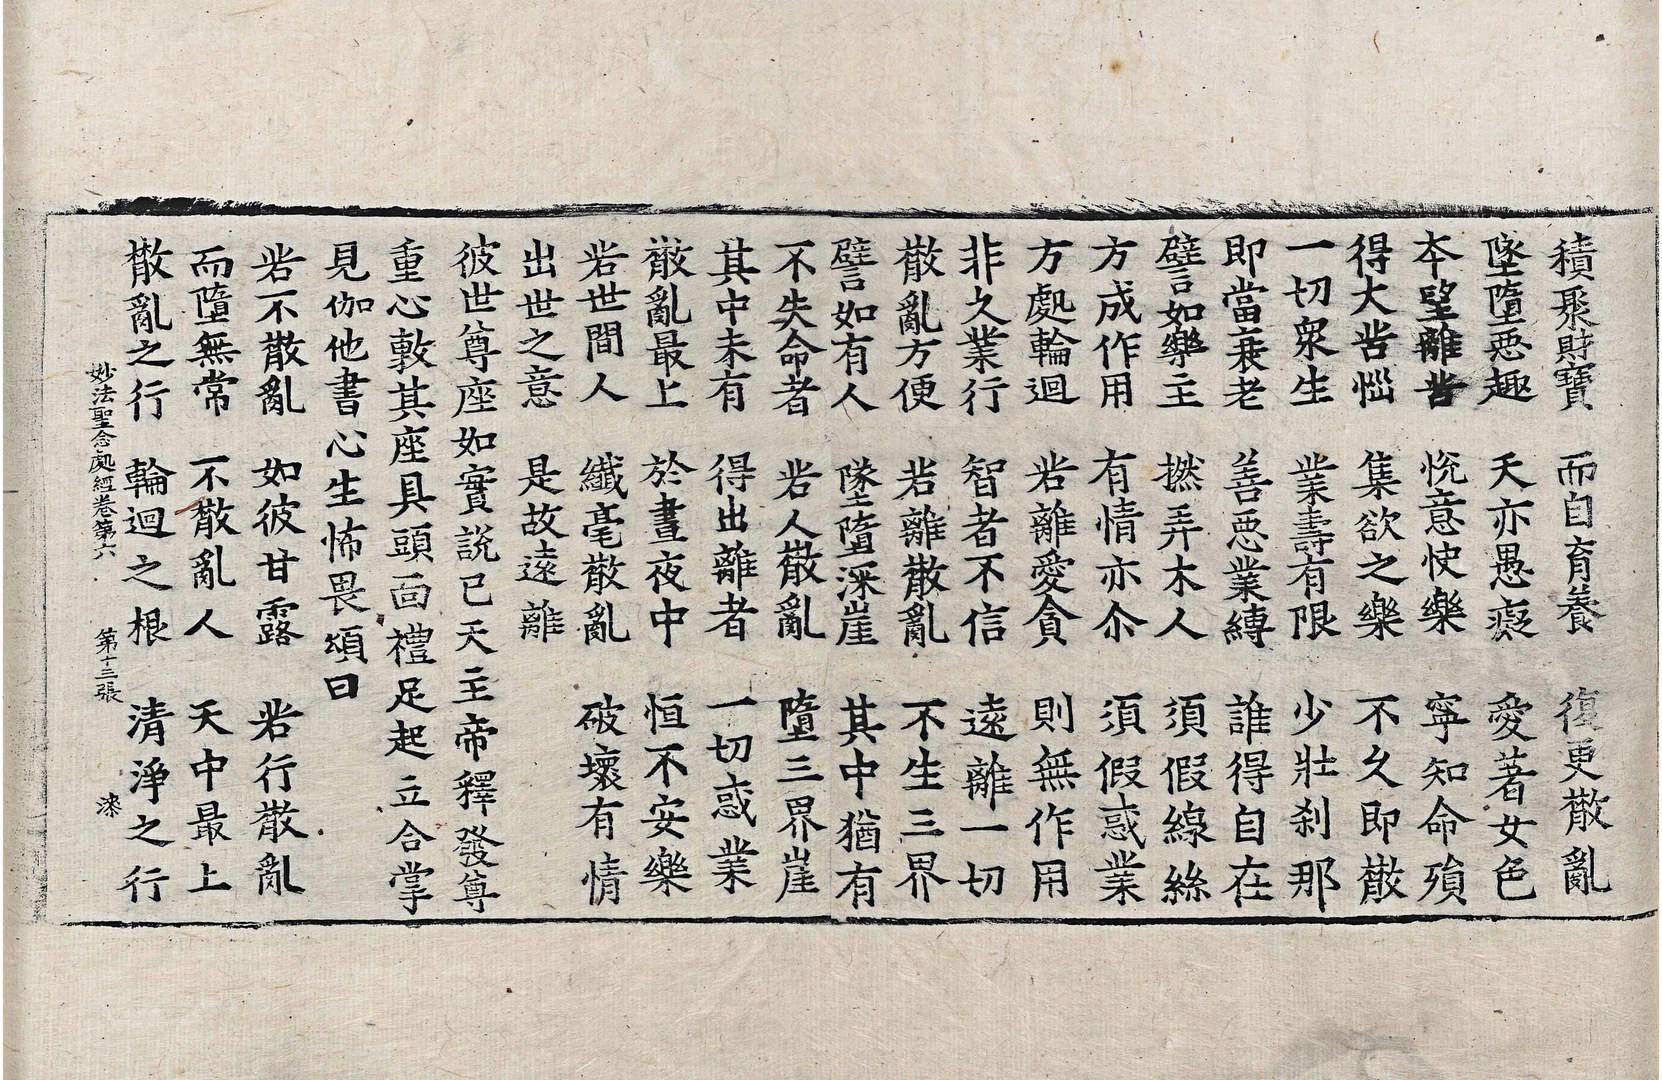 積聚財寶　而自育養　復更散亂
墜墮惡趣　天亦愚癡　愛著女色
本望離苦　悅意快樂　寧知命殞
得大苦惱　集欲之樂　不久即散
一切衆生　業壽有限　少壯刹那
即當衰老　善惡業縛　誰得自在
譬如樂主　撚弄木人　須假線絲
方成作用　有情亦尒　須假惑業
方處輪迴　若離愛貪　則無作用
非久業行　智者不信　遠離一切
散亂方便　若離散亂　不生三界
譬如有人　墜墮深崖　其中猶有
不失命者　若人散亂　墮三界崖
其中未有　得出離者　一切惑業
散亂最上　於晝夜中　恒不安樂
若世間人　纖毫散亂　破壞有情
出世之意　是故遠離
彼世尊座如實說已天主帝釋發尊
重心敷其座具頭面禮足起立合掌
見伽他書心生怖畏頌曰
若不散亂　如彼甘露　若行散亂
而墮無常　不散亂人　天中最上
散亂之行　輪迴之根　清淨之行
妙法聖念處經卷第六　第十三張　漆